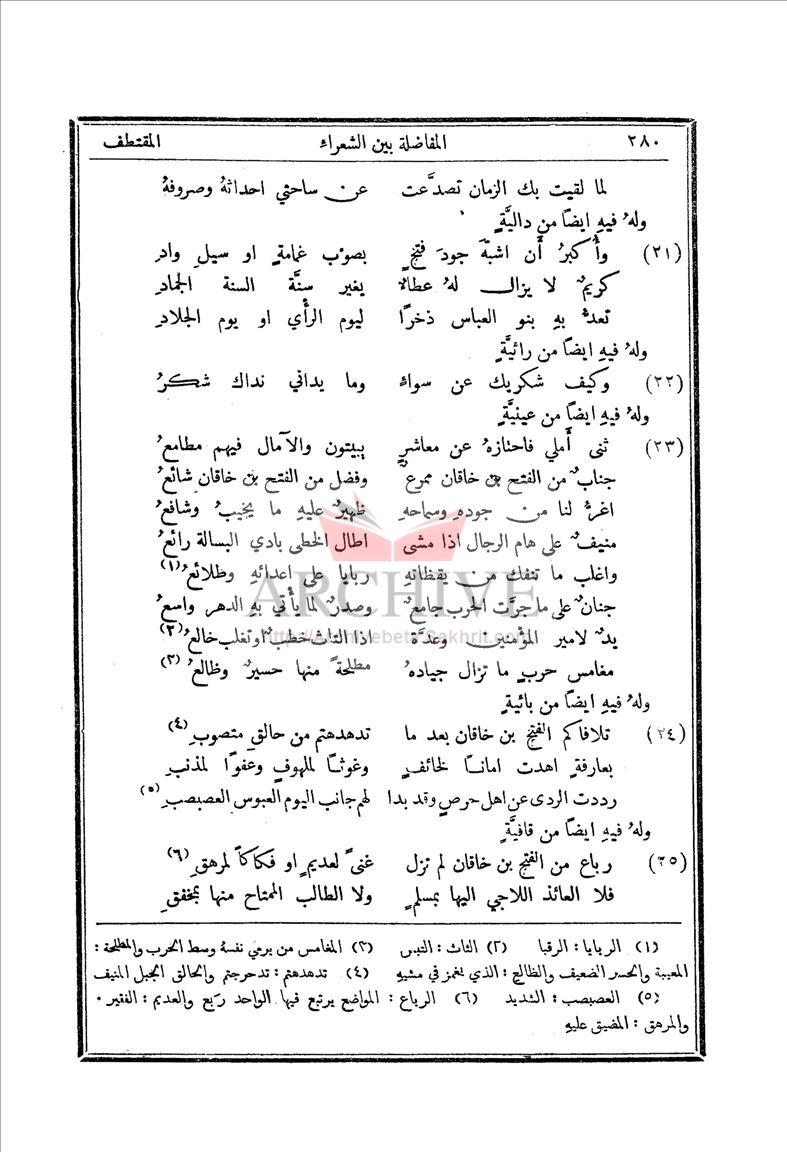 ٢٨٠ المفاضلة بين الشعراء المقتطف
لما لقيت بك الزمان تصدَّعت عن ساحتي احداثهُ وصروفهُ
ولهُ فيهِ ايضاً من داليَّةٍ
(٢١) وأُكبرُ أَن اشبهَ جودَ فتحٍ بصوْب غمامةٍ او سيلِ وادِ
كريمٌ لا يزال لهُ عطاءٌ يغير سنَّة السنة الجمادِ
تعدُّ بهِ بنو العباس ذخرًا ليوم الرأْي او يوم الجلادِ
ولهُ فيهِ ايضاً من رائيَّةٍ
(٢٢) وكيف شكريك عن سواءٍ وما يداني نداك شكرُ
ولهُ فيهِ ايضاً من عينيَّةٍ
(٢٣) ثنى أَملي فاحتازهُ عن معاشرٍ يبيتون والآمال فيهم مطامعُ
جنابٌ من الفتح بن خاقان ممرعٌ وفضل من الفتح بن خاقان شائعُ
اغرُّ لنا من جودهِ وسماحهِ ظهيرٌ عليهِ ما يخيبُ وشافعُ
منيفٌ على هام الرجال اذا مشى اطال الخطى بادي البسالة رائعُ
واغلب ما تنفك من يقظاتهِ ربايا على اعدائهِ وطلائعُ (١)
جنانٌ على ما جرَّت الحرب جامعٌ وصدرٌ لما يأْتي بهِ الدهر واسعُ
يدٌ لامير المؤْمنين وعدَّة اذا التاث خطبٌ او تغلب خالعُ (٢)
مغامس حربٍ ما تزال جيادهُ مطلحةً منها حسيرٌ وظالعُ (٣)
ولهُ فيهِ ايضاً من بائيةٍ
(٢٤) تلافاكم الفتح بن خاقان بعد ما تدهدهتم من حالقٍ متصوبِ (٤)
بعارفةٍ اهدت اماناً لخائفٍ وغوثاً لملهوفٍ وعفوًا لمذنبِ
رددت الردى عن اهل حرصٍ وقد بدا لهم جانب اليوم العبوس العصبصبِ (٥)
ولهُ فيهِ ايضاً من قافيَّةٍ
(٢٥) رباع من الفتح بن خاقان لم تزل غنىً لعديمٍ او فكاكاً لمرهقِ (٦)
فلا العائذ اللاجي اليها بمسلمٍ ولا الطالب الممتاح منها بمخفقِ
(١) الربايا : الرقبا (٢) الثاث : التبس (٣) المغامس من يرمي نفسهُ وسط الحرب والمطلحة :
المعيبة والحسر الضعيف والظالع : الذي يغمز في مشيهِ (٤) تدهدهتم : تدحرجتم والحالق الجبل المنيف
(٥) العصبصب : الشديد (٦) الرباع : المواضع يرتبع فيها الواحد ربع والعديم : الفقير .
والمرهق : المضيق عليهِ
ARCHIVE